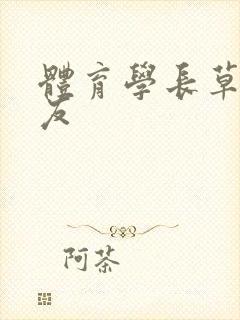 體育學長草
友
阿茶